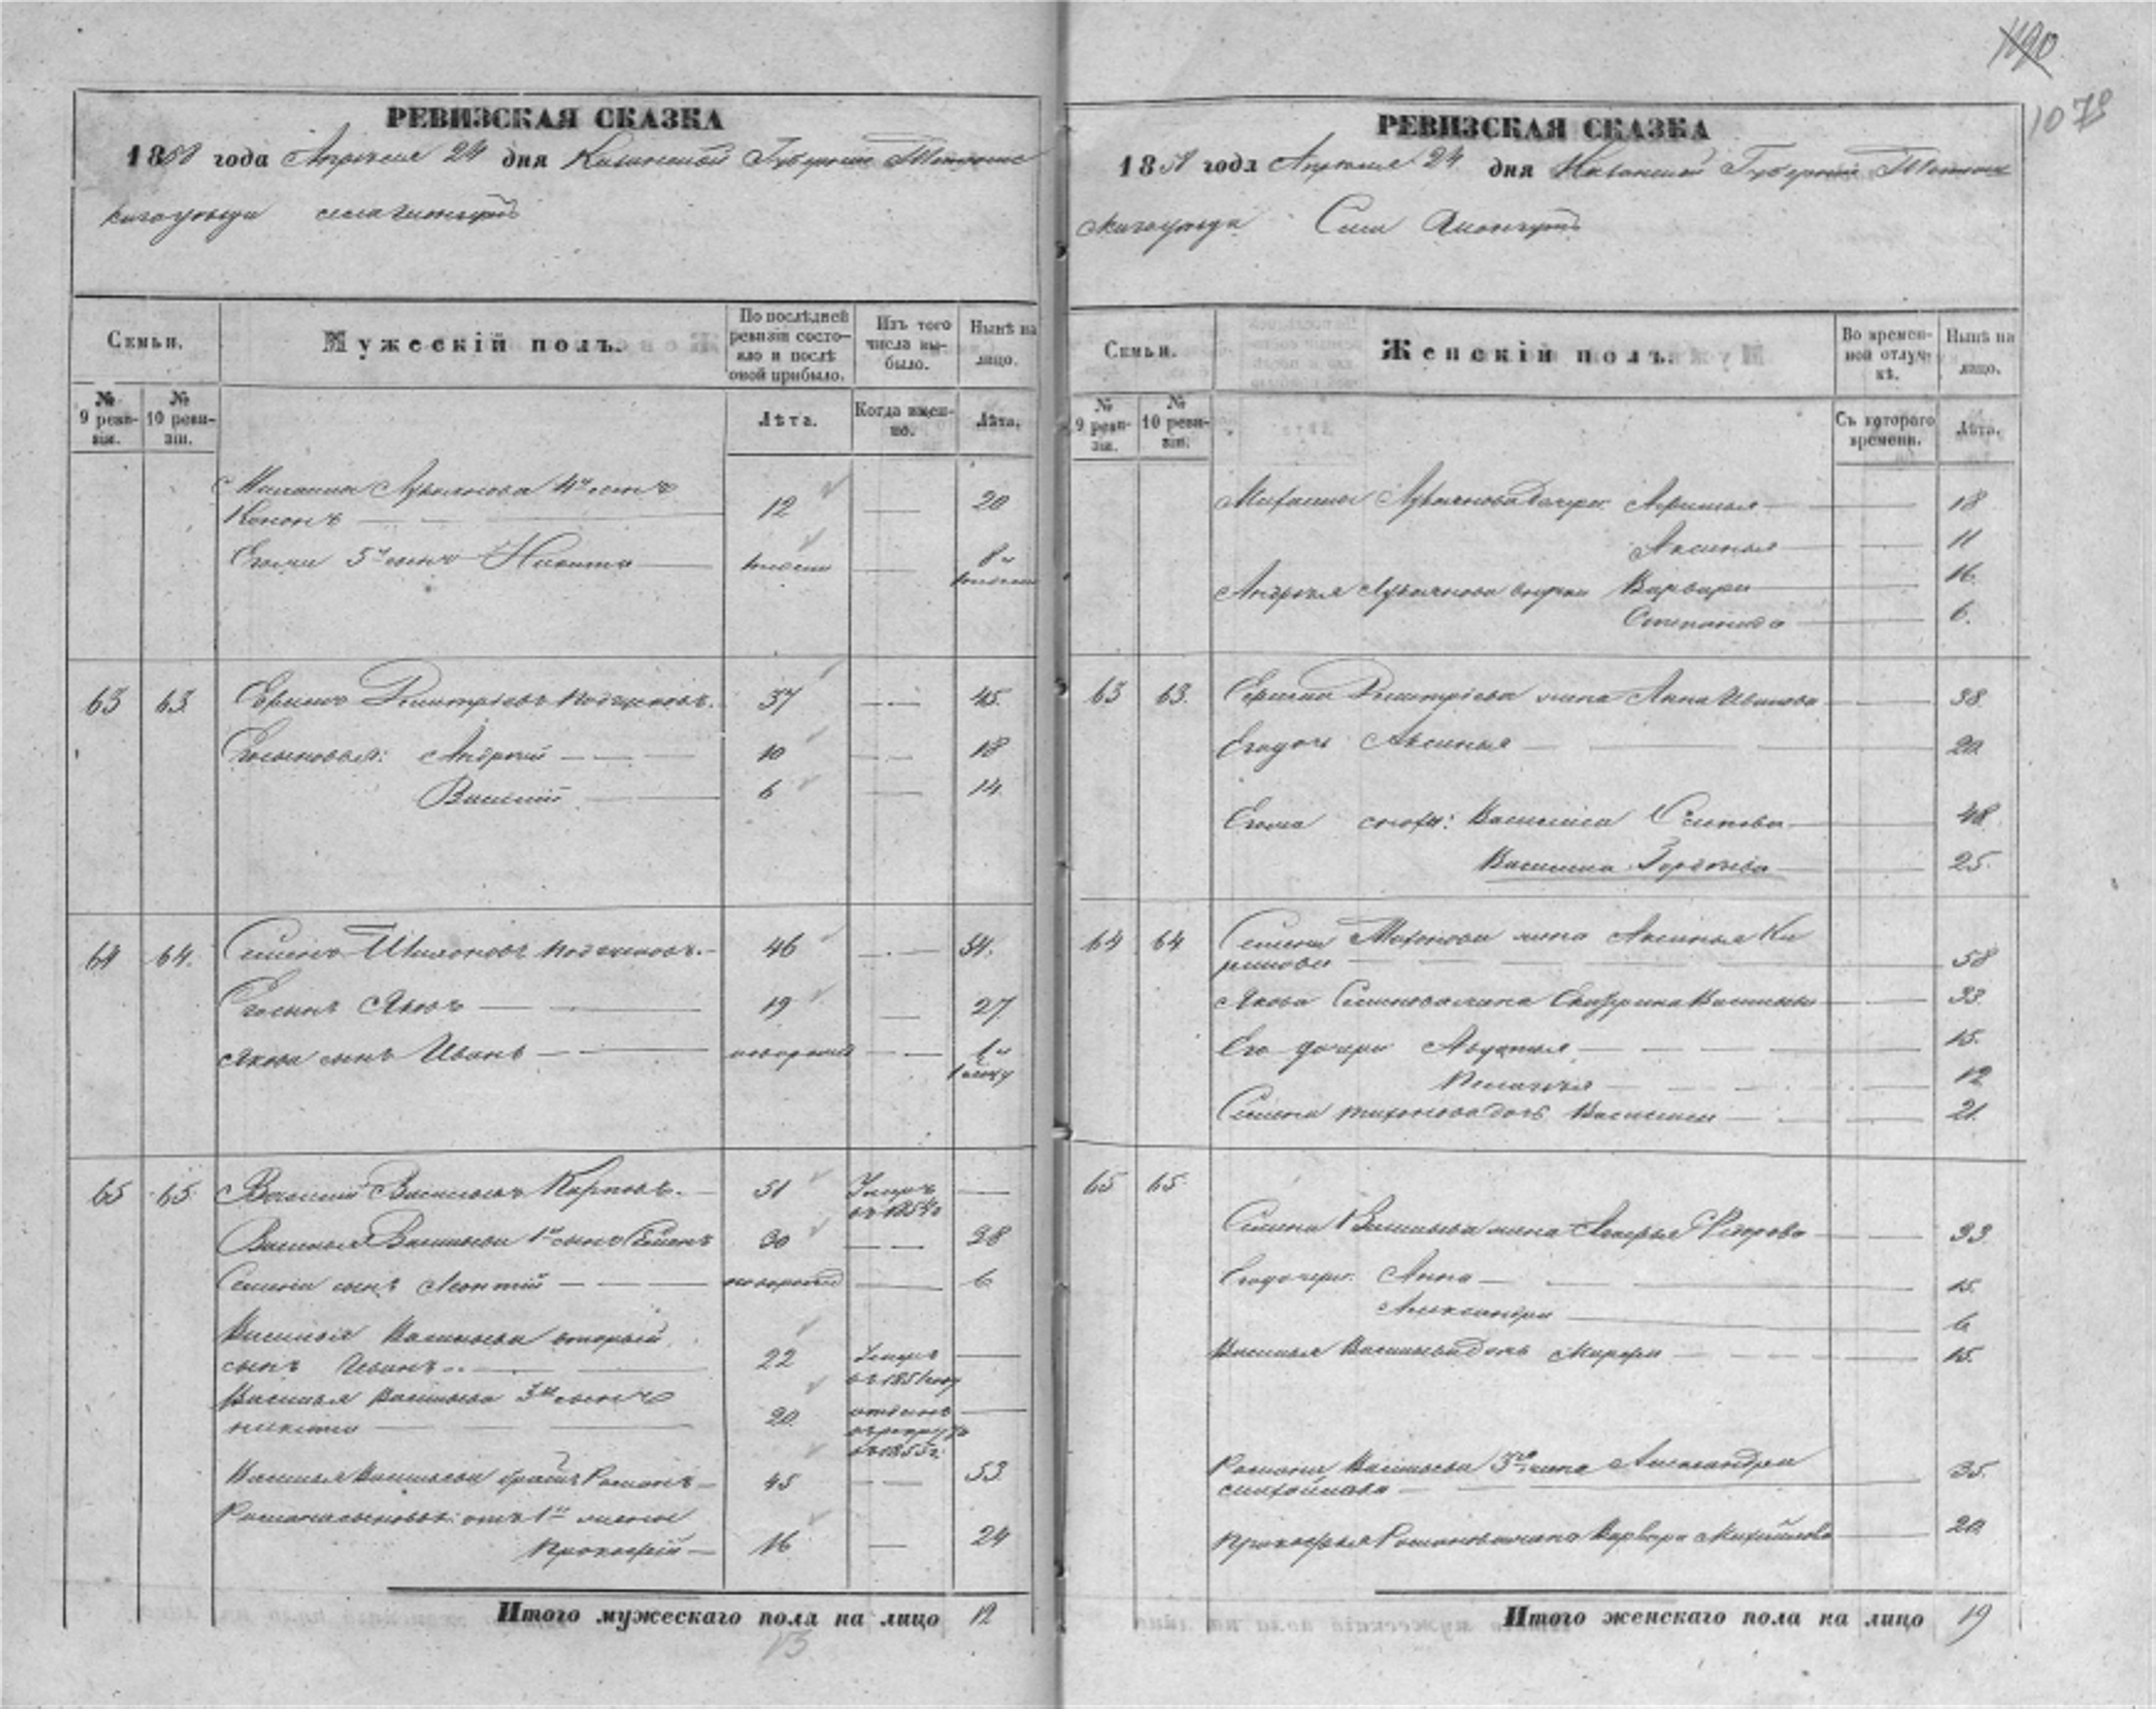 1190
1078
РЕВИЗСКАЯ СКАЗКА
1858 года Апреля 24 дня Казанской Губернии Тетюшс
каго уезда села
Семьи.
Мужескій полъ.
По послѣдней ревизіи состояло и послѣ оной прибыло.
Изъ того числа выбыло.
Нынѣ на лицо.
№ 9 ревизіи.
№ 10 ревизіи.
Лѣта.
Когда именно.
Лѣта.
Лукьянова 4й сынъ
Кононъ 12 20
Егоже 5й сынъ Никита
63 63 Ефимъ Дмитріевъ 37 45
Егосыновья: Андрей 10 18
Василій 6 14
64 64 Семенъ Тихоновъ 46 54
Егосынъ Яковъ 19 27
Якова сынъ Иванъ новорожд
65 65 Василій Васильевъ Карповъ 51 Умеръ
въ 1854
Василья Васильева 1й сынъ Семенъ 30 38
Семена сынъ Леонтій новорожд 6
Василья Васильева вторый
сынъ Иванъ 22 Умеръ
въ 1851 году
Василья Васильева 3й сынъ
Никита 20 отданъ
въ рекруты
въ 1855 г.
Василья Васильева братъ Романъ 45 53
Романа сыновья: отъ 1й жены
Прокофій 16 24
Итого мужескаго пола на лицо 12
13
РЕВИЗСКАЯ СКАЗКА
1858 года Апреля 24 дня Казанской Губерніи Тетюш
скаго уезда Села
Семьи.
Женскій полъ.
Во временной отлучкѣ.
Нынѣ на лицо.
№ 9 ревизіи.
№ 10 ревизіи.
Съ котораго времени.
Лѣта.
Лукьянова дочери 18
Аксинья 11
Андрея Лукьянова внучки Варвара 16
Степанида 6
63 63 Ефима Дмитріева жена Анна Иванова 38
Его дочь Аксинья 20
Егоже снохи: Василиса Осипова 48
Василиса 25
64 64 Семена Тихонова жена Аксинья Ки
рилова 58
Якова Семенова жена Катерина Васильева 33
Его дочери Авдотья 15
Пелагея 12
Семена Тихонова дочь Василиса 21
65 65
Семена Васильева жена Федорова 33
Егодочери: Анна 15
Александра 6
Василья Васильева дочь Марфа 15
Романа Васильева 3я жена Александра
Михайлова 35
Прокофья Романова жена Варвара Михайлова 20
Итого женскаго пола на лицо 19